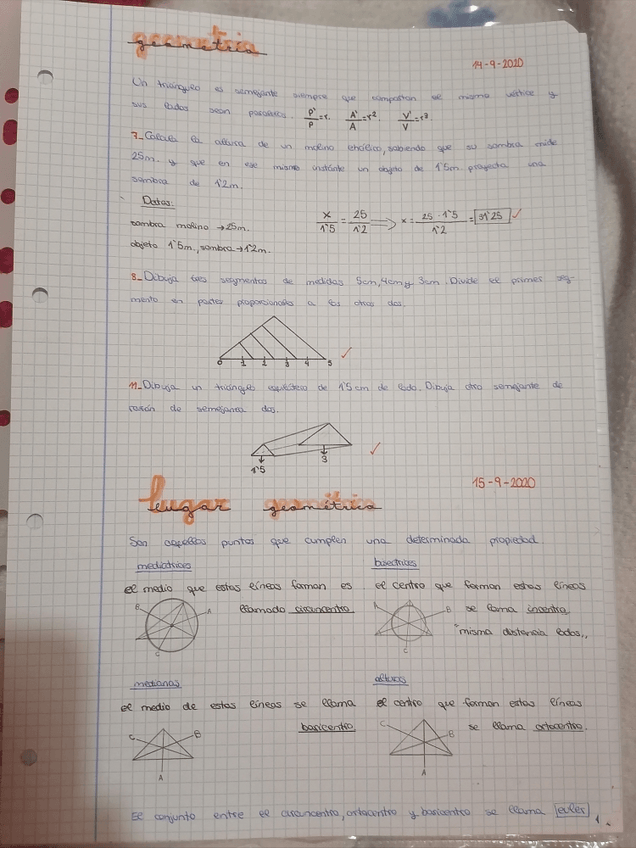 geometría
14-9-2020
Un triángulo es semejante siempre que compartan el mismo vértice y
sus lados sean paralelos. P'/P=r. A'/A=r² V'/V=r³
7_Calcula la altura de un molino eholico, sabiendo que su sombra mide
25m. y que en ese mismo instante un objeto de 1'5m proyecta una
sombra de 1'2m.
Datos:
sombra molino →25m.
objeto 1'5m, sombra→1'2m.
x/1'5 = 25/1'2 ⟹ x= 25·1'5/1'2 = 31'25 ✓
8_Dibuja tres segmentos de medidas 5cm, 4cm y 3cm. Divide el primer seg-
mento en partes proporcionales a los otros dos.
0 1 2 3 4 5 ✓
11_Dibuja un triángulo equilátero de 1'5cm de lado. Dibuja otro semejante de
razón de semejanza dos.
1'5 3 ✓
15-9-2020
lugar geométrico
Son aquellos puntos que cumplen una determinada propiedad
mediatrices
el medio que estas líneas forman es
llamado circuncentro
B A C
bisectrices
el centro que forman estas líneas
se llama incentro
"misma distancia lados,,
A B C
medianas
el medio de estas líneas se llama
baricentro
C B A
alturas
el centro que forman estas líneas
se llama ortocentro.
C B A
El conjunto entre el circuncentro, ortocentro y baricentro se llama euler
1.